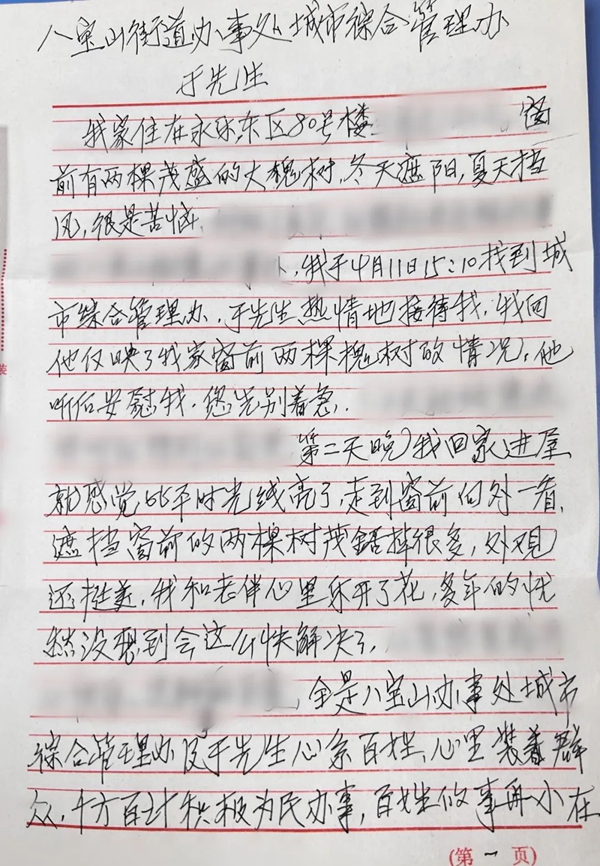 八宝山街道办事处城市综合管理办
于先生
我家住在永乐东区80号楼 窗
前有两棵茂盛的大槐树，冬天遮阳，夏天挡
风，很是苦恼
，我于4月11日15:10找到城
市综合管理办，于先生热情地接待我，我向
他反映了我家窗前两棵槐树的情况，他
听后安慰我，您先别着急，
第二天晚我回家进屋
就感觉比平时光线亮了，走到窗前向外一看，
遮挡窗前的两棵树茂锯掉很多，外观
还挺美，我和老伴心里乐开了花，多年的忧
愁没想到会这么快解决了，
，全是八宝山办事处城市
综合管理办及于先生心系百姓、心里装着群
众，千方百计积极为民办事，百姓的事再小在
(第一页)